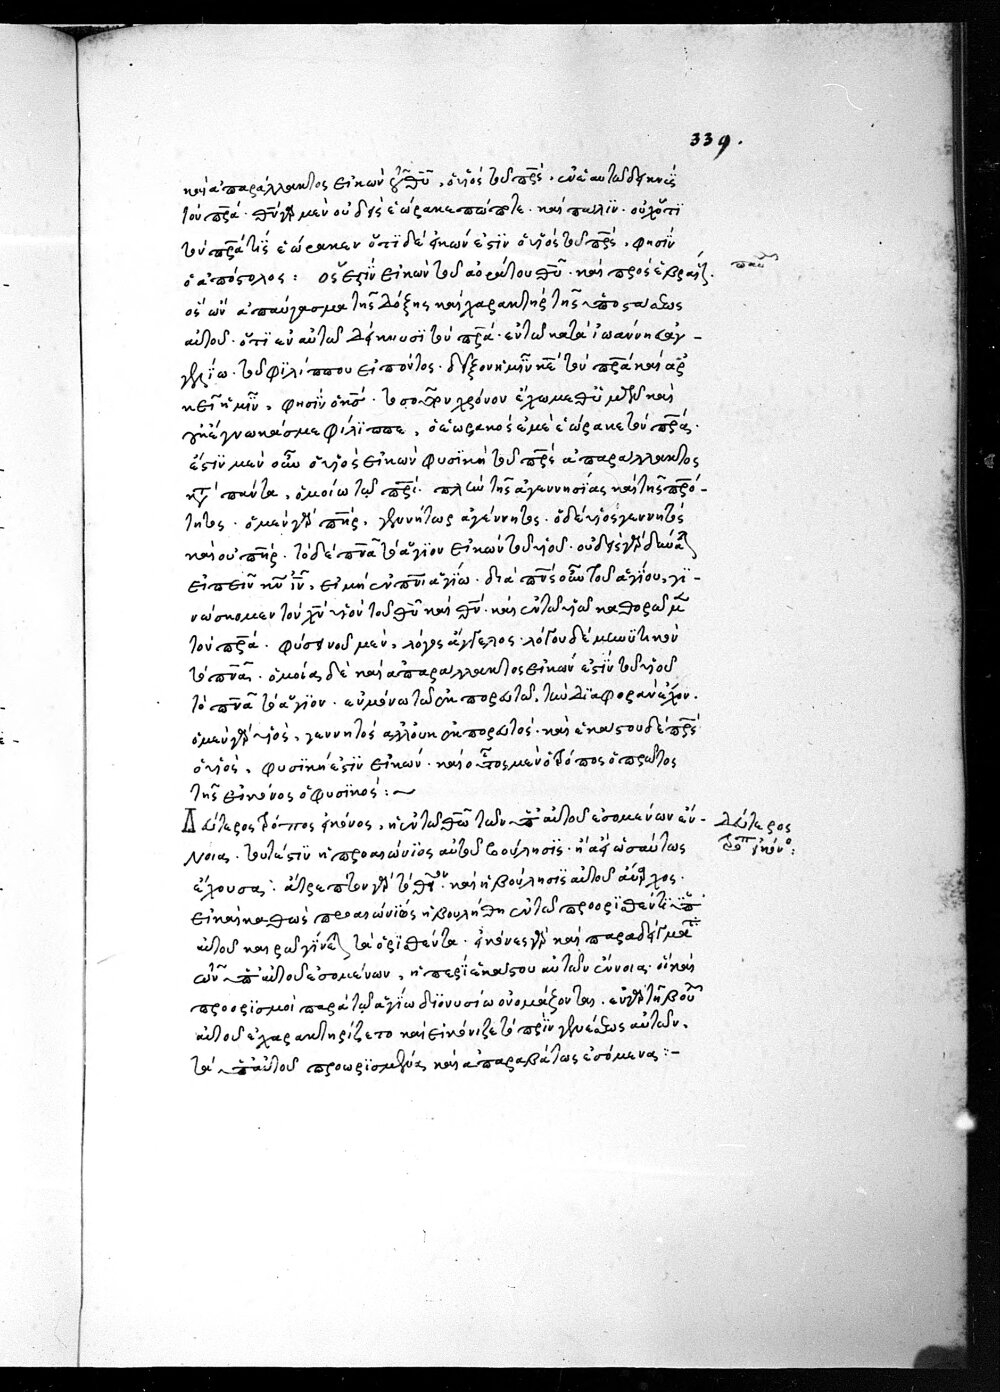 339.
καὶ ἀπαράλλακτος εἰκὼν τοῦ θῦ, ὁ υἱὸς τοῦ πρς, ἐν ἑαυτῶ δεικνὺς
τὸν πρα. θν γὰρ μὲν οὐδεὶς ἑώρακε πώποτε. καὶ πάλιν. οὐχ ὅτι
τὸν πρα τὶς ἑώρακεν ὅτι δὲ εἰκών ἐστιν ὁ υἱὸς τοῦ πρς, φησὶν
ὁ ἀπόστολος: ὅς ἐστιν εἰκὼν τοῦ ἀοράτου θῦ. καὶ πρὸς ἑβραί.
παῦ
ὃς ὢν ἀπαύγασμα τῆς δόξης καὶ χαρακτὴρ τῆς ὑποστάσεως
αὐτοῦ. ὅτι ἐν αὐτῶ δείκνυσι τὸν πρα. ἐν τῶ κατὰ ἰωάννην εὐαγ-
γελίω. τοῦ φιλίππου εἰπόντος. δεῖξον ἡμῖν κε τὸν πρα καὶ ἀρ
κεῖ ἡμῖν, φησὶν ὁ κς. τοσοῦτον χρόνον ἔχω μεθ' ὑμῶν καὶ
οὐκ ἔγνωκάς με φίλιππε, ὁ ἑωρακὸς ἐμὲ ἑώρακε τὸν πρα.
ἔστιν μὲν οὖν ὁ υἱὸς εἰκὼν φυσικὴ τοῦ πρς ἀπαράλλακτος
κατὰ πάντα, ὁμοίω τῶ πρι. πλὴν τῆς ἀγεννησίας καὶ τῆς πρό-
τητος. ὁ μὲν γὰρ πηρ, γεννήτωρ ἀγέννητος. ὁ δὲ υἱὸς γεννητὸς
καὶ οὐ πηρ. τὸ δὲ πνα τὸ ἅγιον εἰκὼν τοῦ υἱοῦ. οὐδεὶς γὰρ δύναται
εἰπεῖν κν ιν, εἰ μὴ ἐν πνι ἁγίω. διὰ πνς οὖν τοῦ ἁγίου, γι-
νώσκομεν τὸν χν υἱὸν τοῦ θῦ καὶ θν. καὶ ἐν τῶ υἱῶ καθορῶμεν
τὸν πρα. φύσει νοῦ μὲν, λόγος ἄγγελος. λόγου δὲ μηνυτικὸν
τὸ πνα. ὁμοίας δὲ καὶ ἀπαράλλακτος εἰκών ἐστιν τοῦ υἱοῦ
τὸ πνα τὸ ἅγιον. ἐν μόνω τῶ ἐκπορευτῶ, τὴν διαφορὰν ἔχον.
ὁ μὲν γὰρ υἱὸς, γεννητὸς ἀλλ' οὐκ ἐκπορευτός. καὶ ἑκάστου δὲ πρς
ὁ υἱὸς, φυσική ἐστιν εἰκών. καὶ οὗτος μὲν ὁ τρόπος ὁ πρῶτος
τῆς εἰκόνος ὁ φυσικός: ~
Δεύτερος τρόπος εἰκόνος, ἡ ἐν τῶ θω τῶν ὑπ' αὐτοῦ ἐσομένων ἔν-
Δεύτερος
τρόπ εἰκόνο:
νοια. τουτέστιν ἡ προαιώνιος αὐτοῦ βούλησις. ἡ ἀεὶ ὡσαύτως
ἔχουσα. ἄτρεπτον γὰρ τὸ θεῖον. καὶ ἡ βούλησις αὐτοῦ ἄναρχος.
εἰ καὶ καθὼς προαιωνίως ἠβουλήθη ἐν τῶ προορισθέντι ὑπ'
αὐτοῦ καιρῶ γίνεται τὰ ὁρισθέντα. εἰκόνες γὰρ καὶ παραδείγματα
τῶν ὑπ' αὐτοῦ ἐσομένων, ἡ περὶ ἑκάστου αὐτῶν ἔννοια. οἳ καὶ
προορισμοὶ παρὰ τῶ ἁγίω διονυσίω ὀνομάζονται. ἐν γὰρ τῆ βουλῆ
αὐτοῦ ἐχαρακτηρίζετο καὶ εἰκόνιζε τὸ πρὶν γενέσεως αὐτῶν.
τὰ ὑπ' αὐτοῦ προωρισμένα καὶ ἀπαραβάτως ἐσόμενα:-